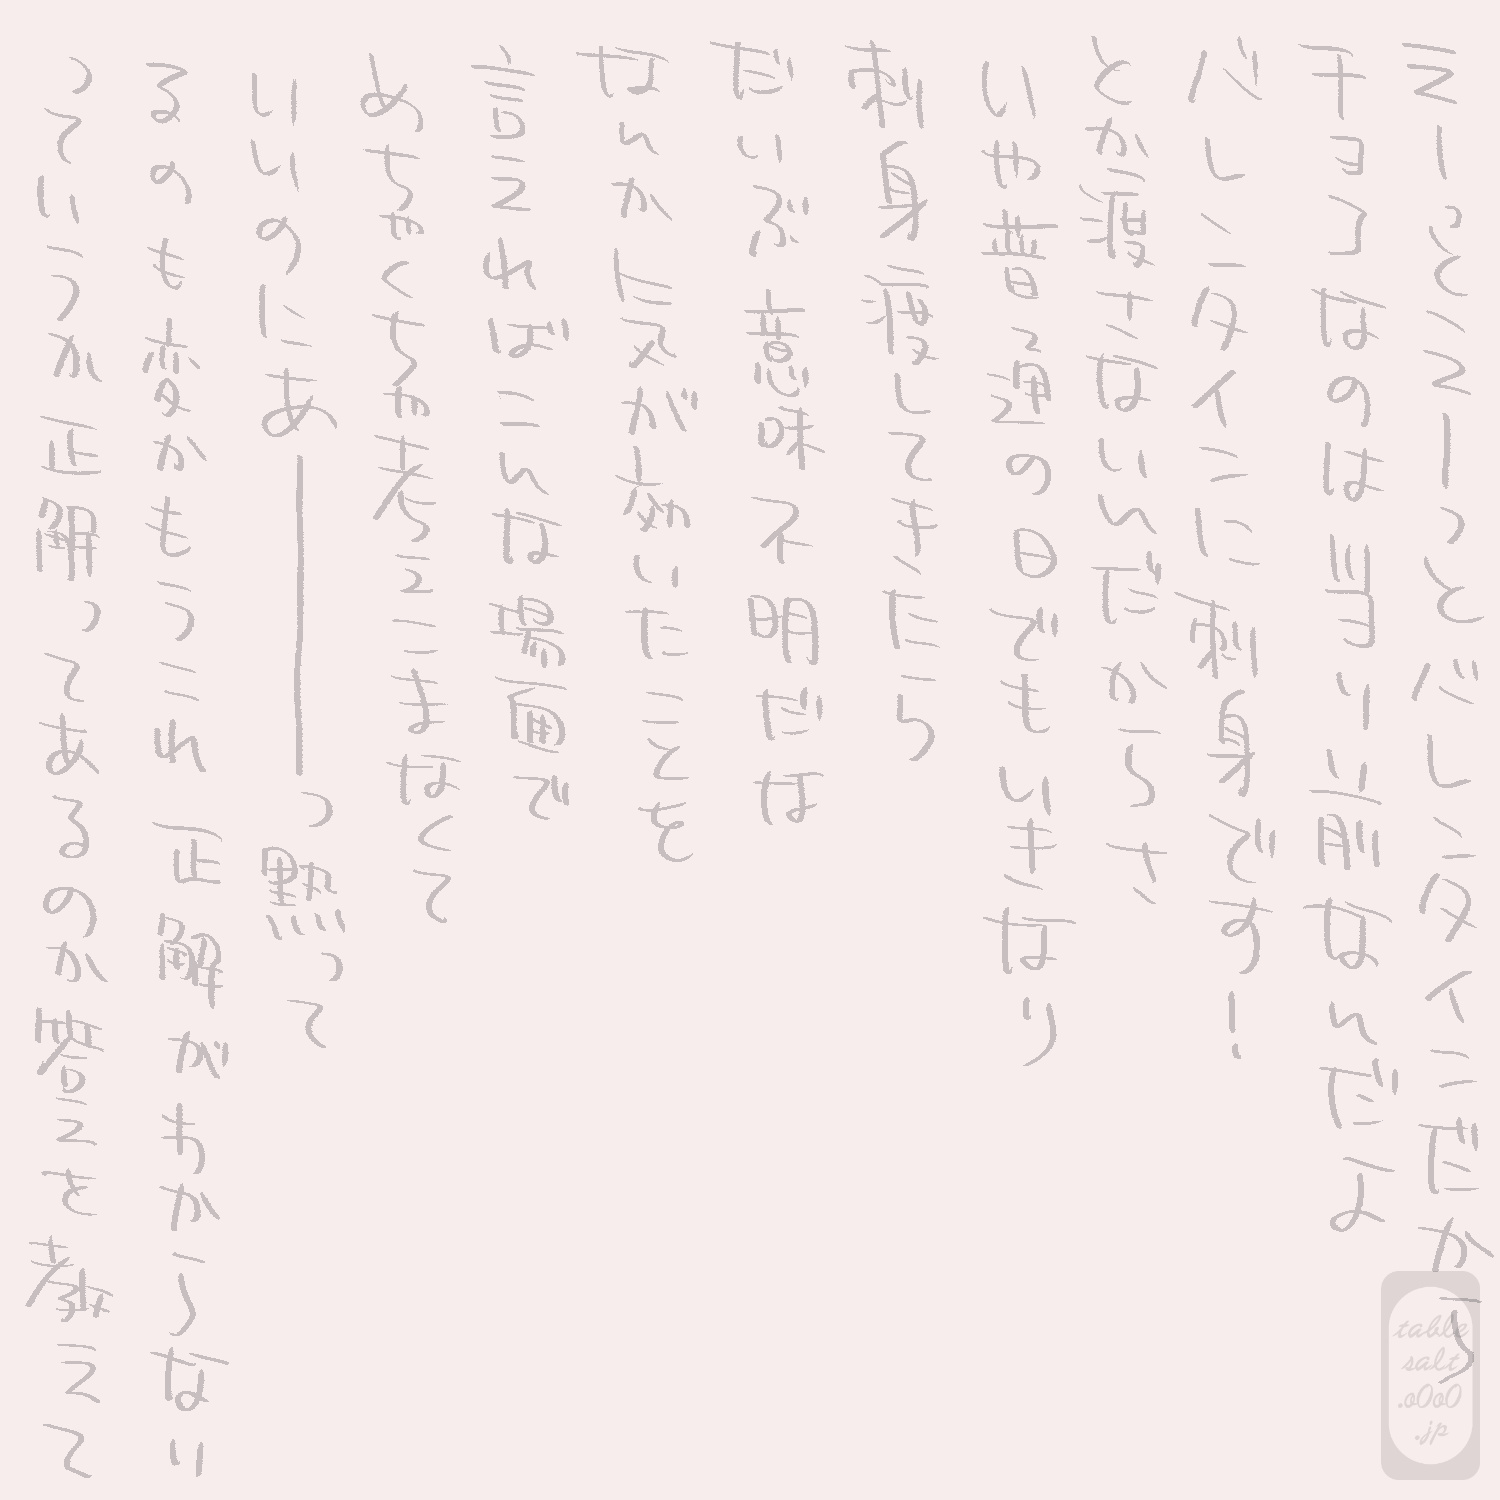 えーっとえーっとバレンタインだから
チョコなのは当り前なんだよ
バレンタインに刺身です！
とか渡さないんだからさ
いや普通の日でもいきなり
刺身渡してきたら
だいぶ意味不明だな
なんか気が効いたことを
言えればこんな場面で
めちゃくちゃ考えこまなくて
いいのにあ――――っ黙って
るのも変かもうこれ正解がわからない
っていうか正解ってあるのか答えを教えて
table
salt
.o0o0
.jp